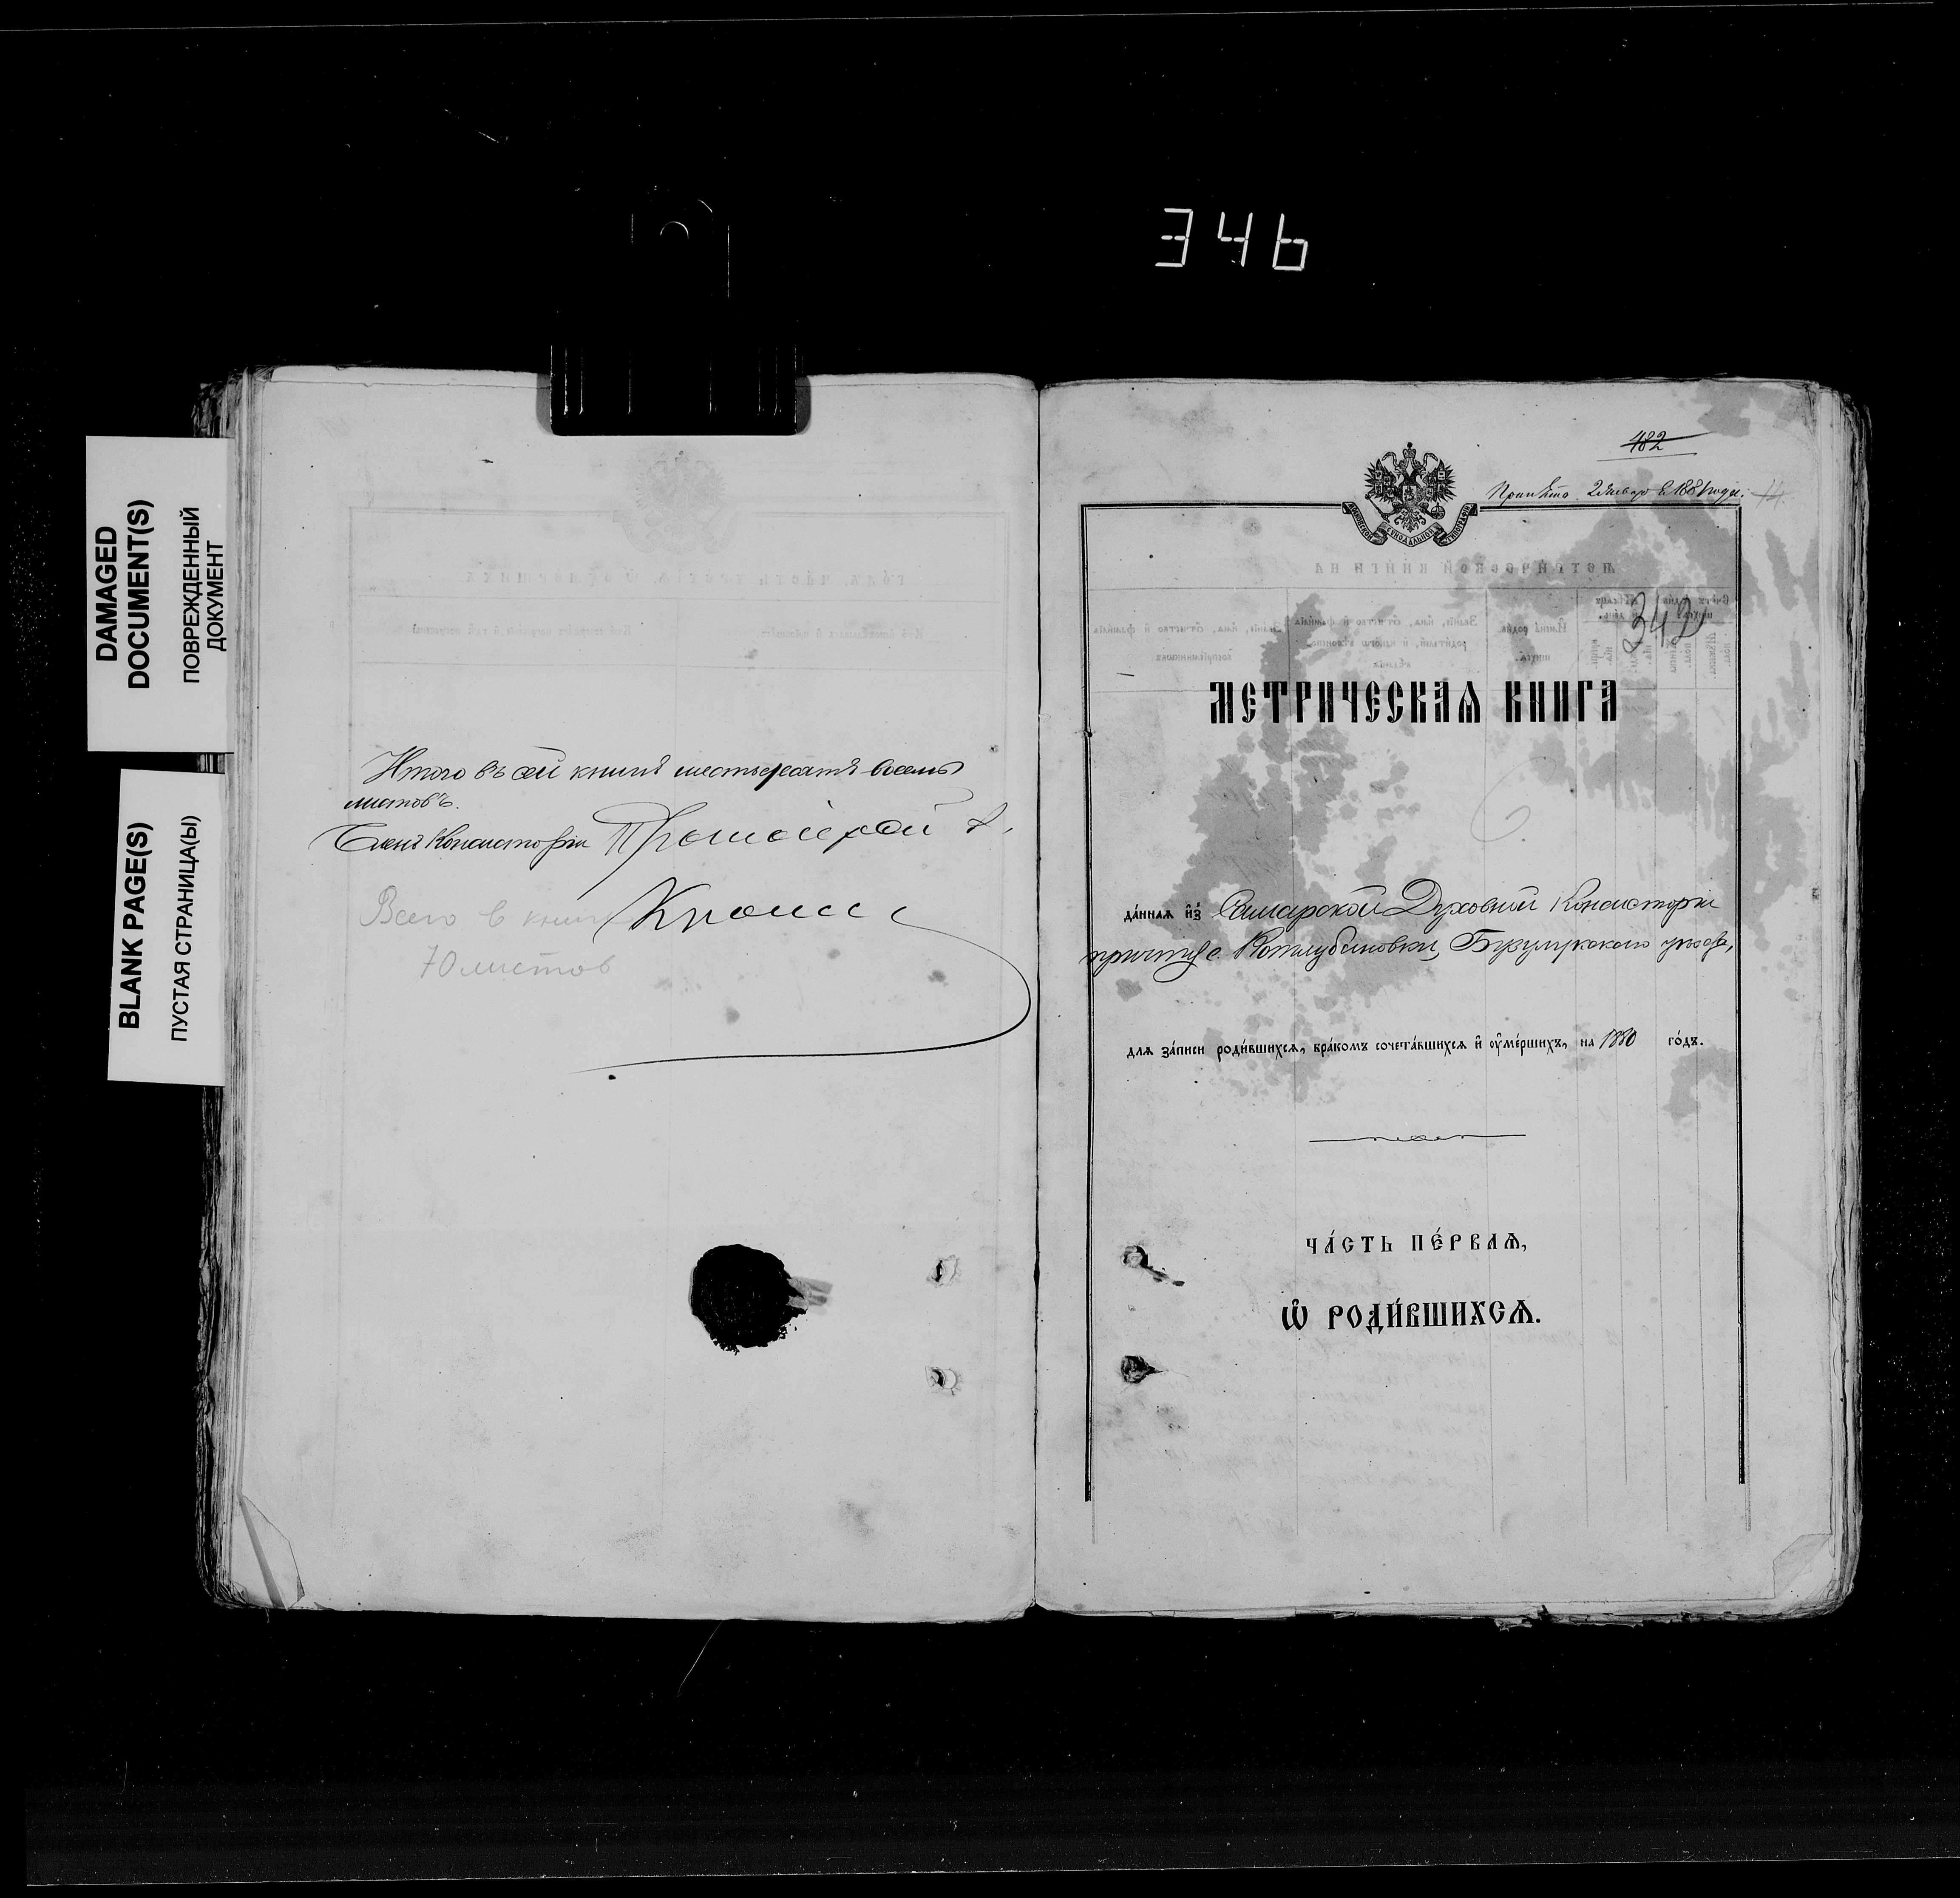 346
DAMAGED
DOCUMENT(S)
ПОВРЕЖДЕННЫЙ
ДОКУМЕНТ
BLANK PAGE(S)
ПУСТАЯ СТРАНИЦА(Ы)
Итого въ сей книгѣ шестьдесятъ восемь
листовъ.
Членъ Консисторіи
Всего в книге
70 листов
482
2 Января 1881 года.
МОСКОВСКОЙ СѴНОДАЛЬНОЙ ТИПОГРАФІИ
342
МЕТРИЧЕСКАѦ КНИГА
да́ннаѧ и҆з̾ Самарской Духовной Консисторіи
причту с. Котлубановки, Бузулукскаго уѣзда,
длѧ за́писи роди́вшихсѧ, бра́комъ сочета́вшихсѧ и҆ ᲂу҆ме́ршихъ, на 1880 го́дъ.
ЧА́СТЬ ПЕ́РВАѦ,
Ѽ РОДИ́ВШИХСѦ.